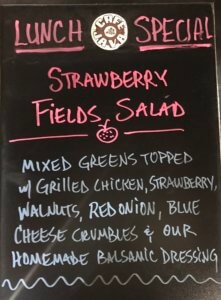 LUNCH SPECIAL
STRAWBERRY
FIELDS SALAD
MIXED GREENS TOPPED
w/ GRILLED CHICKEN, STRAWBERRY,
WALNUTS, RED ONION, BLUE
CHEESE CRUMBLES & OUR
HOMEMADE BALSAMIC DRESSING